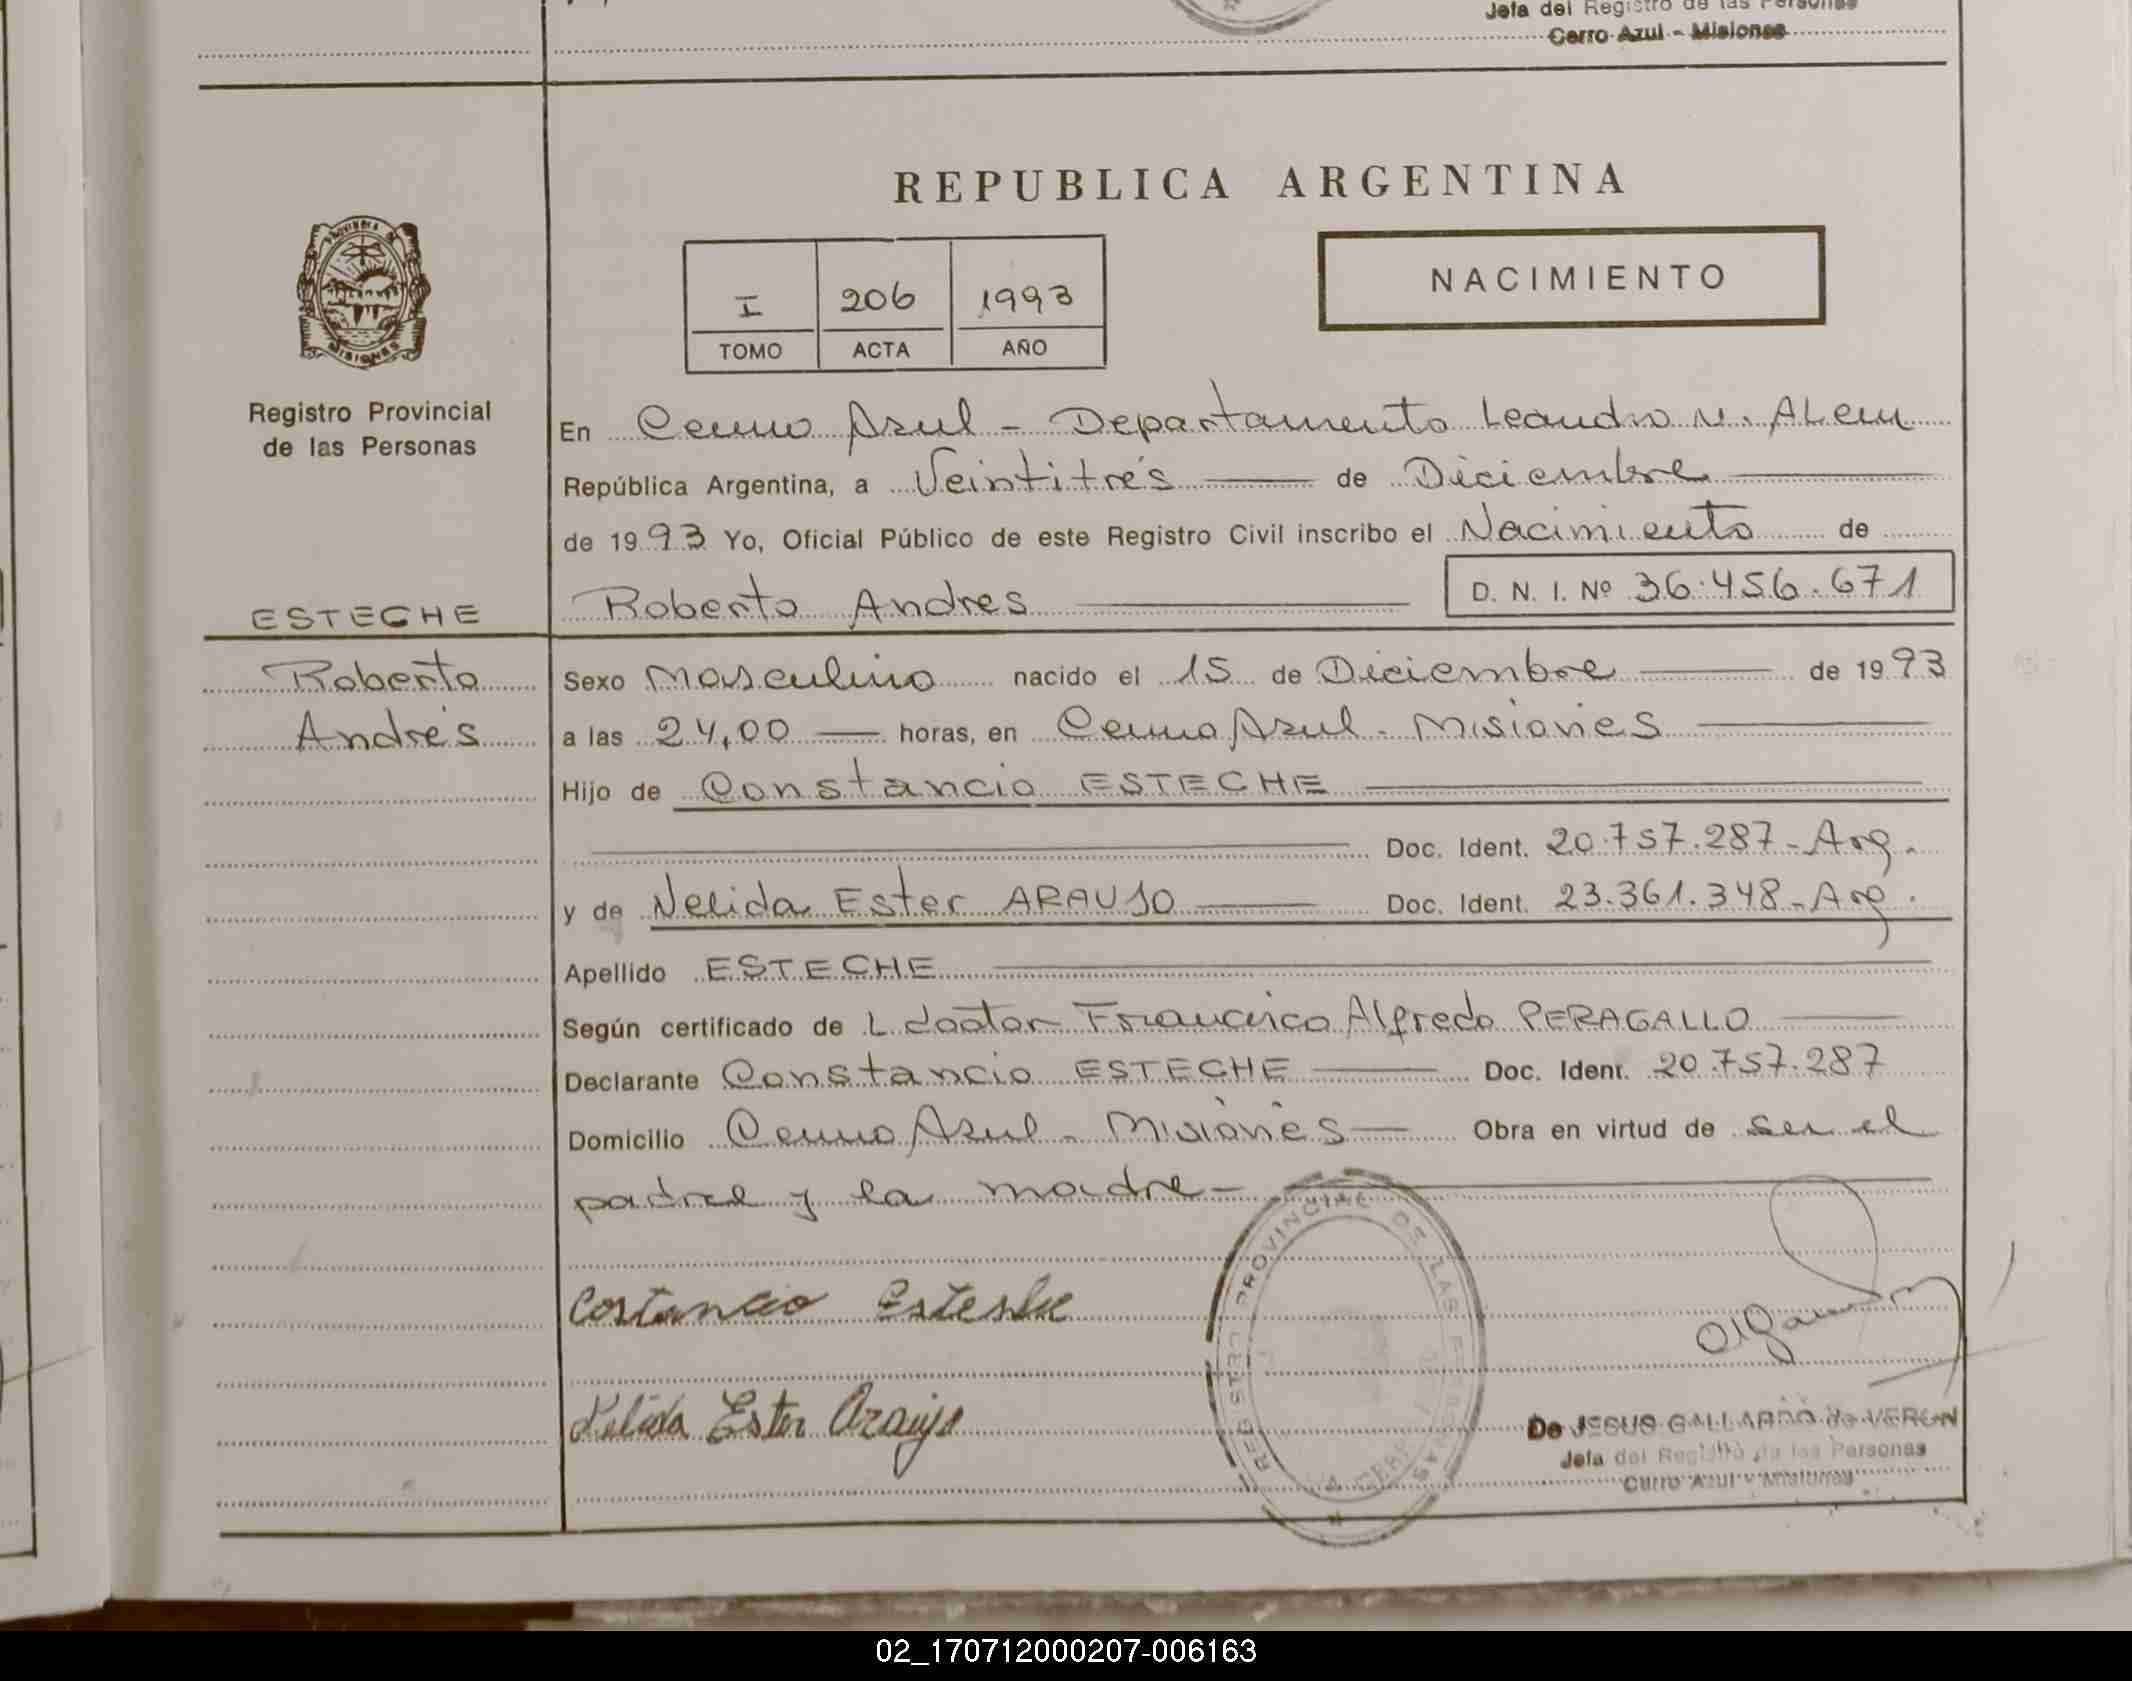 Jefa del Registro de las Personas
Cerro Azul - Misiones
REPUBLICA ARGENTINA
PROVINCIA DE
MISIONES
NACIMIENTO
I 206 1993
TOMO ACTA AÑO
Registro Provincial
de las Personas
En Cerro Azul - Departamento Leandro N. ALem
República Argentina, a Veintitrés de Diciembre
de 1993 Yo, Oficial Público de este Registro Civil inscribo el Nacimiento de
Roberto Andres D. N. I. Nº 36.456.671
ESTECHE
Roberto
Andrés
Sexo Masculino nacido el 15 de Diciembre de 1993
a las 24,00 horas, en Cerro Azul - Misiones
Hijo de Constancio ESTECHE
Doc. Ident. 20.757.287 - Arg.
y de Nelida Ester ARAUJO Doc. Ident. 23.361.348 - Arg.
Apellido ESTECHE
Según certificado de L doctor Francisco Alfredo PERAGALLO
Declarante Constancio ESTECHE Doc. Ident. 20.757.287
Domicilio Cerro Azul - Misiones Obra en virtud de ser el
padre y la madre -
REGISTRO PROVINCIAL DE LAS PERSONAS
Costancio Esteche
Nelida Ester Araujo
De JESUS GALLARDO de VERON
Jefa del Registro de las Personas
Cerro Azul - Misiones
02_170712000207-006163